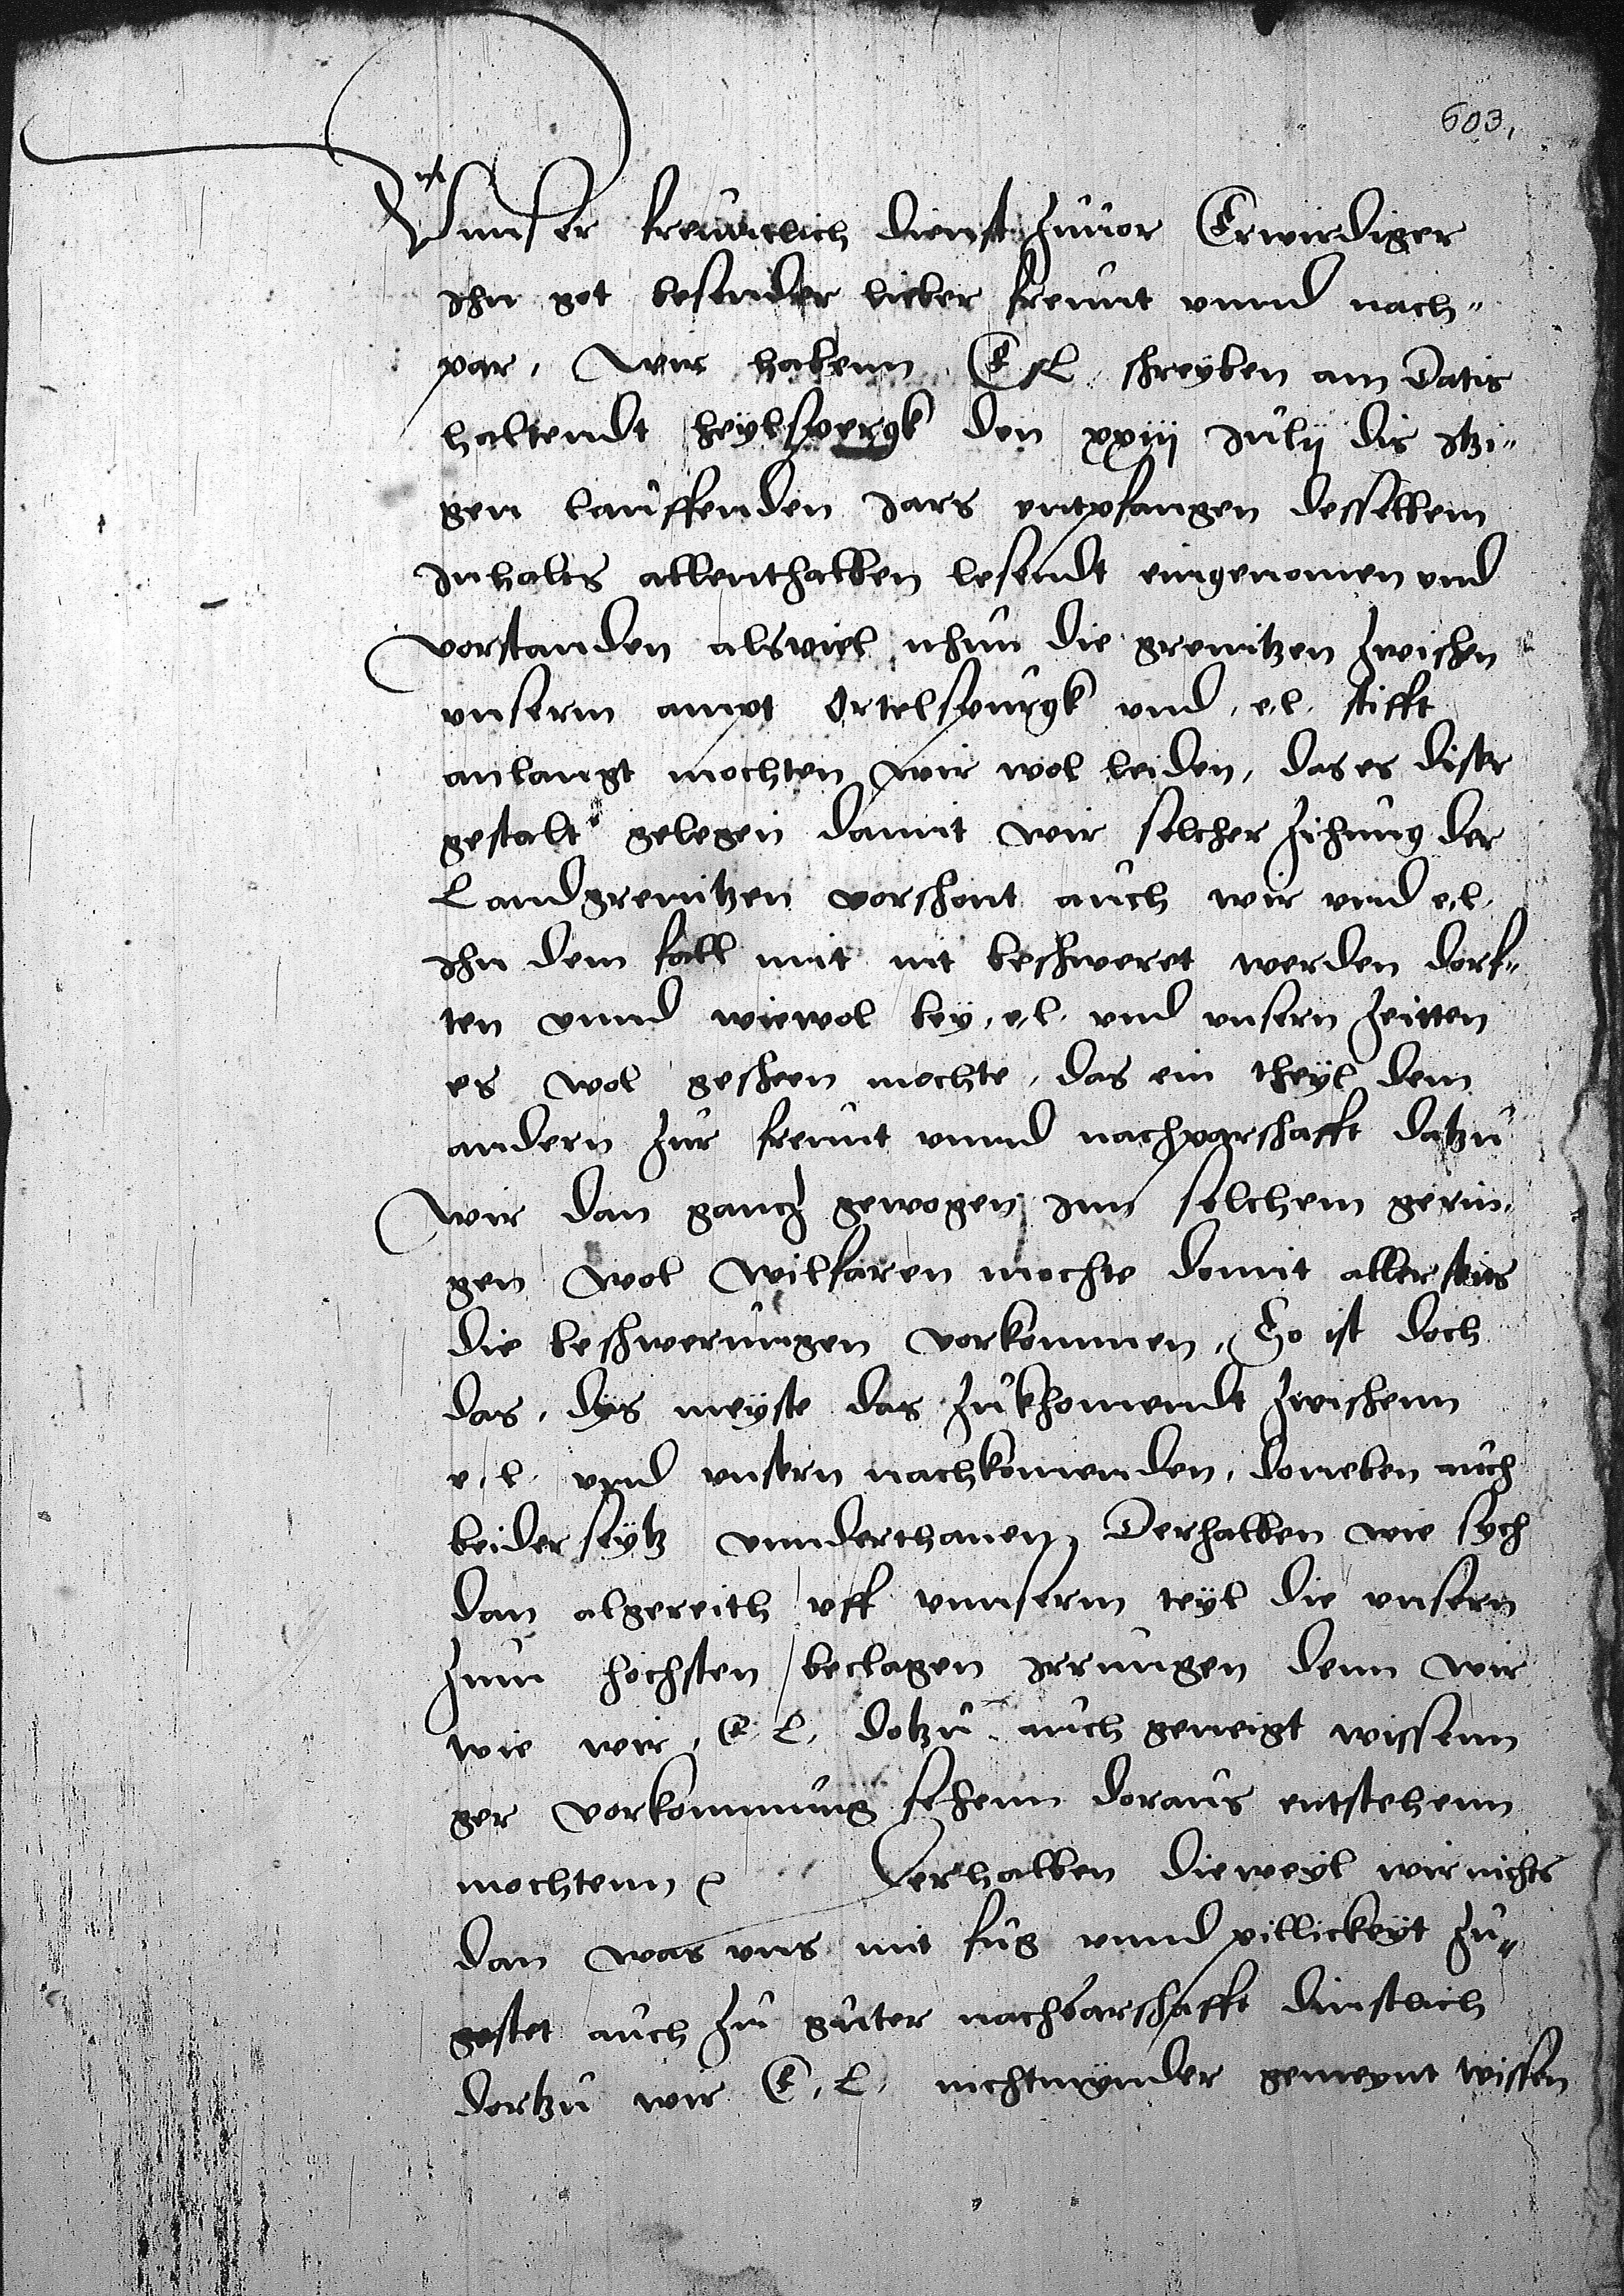 603.
Vnnser freuntlich dienst zuuor Erwirdiger
Ihn got besonder lieber freunt vnnd nach„
par, Wir habenn E L schreyben am Datis
haltendt heylspergk den xxiij July dis itzi„
gen lauffenden Jars entpfangen desselbenn
Inhalts allenthalben lesendt eingenomen vnd
vorstanden alsviel nhun die grenitzen zwischen
vnserm ampt Ortelspurgk vnd, e, l, stifft
anlangt mochten wir wol leiden, das es diser
gestalt gelegen damit wir solcher zihung der
Landgrenitzen vorschont auch wir vnd e, l,
Ihn dem fall mit nit beschweret werden dorf„
ten vnnd wiewol bey, e, l, vnd vnsern zeitten
es wol gescheen mochte, das ein theyl dem
andern zur freunt vnnd nachparschafft datzu
wir dan gancz gewogen Inn solchem gerin„
gen wol wilfaren mochte domit allerseits
die beschwerungen vorkommen, So ist doch
das, dys meyste das zukhomendt zwischenn
e, l, vnd vnsern nachkomenden, doneben auch
beiderseytz vnnderthanen, Derhalben wie sych
dan algereith vff vnnserm teyl die vnsern
zum hochsten beclagen Irrungen denn wir
wie wir, E, L, dotzu auch geneigt wissenn
ger vorkommung sehenn doraus entstehenn
mochtenn Derhalben dieweyl wir nichts
dan was vns mit fug vnnd pillickeyt zu„
gestet auch zu guter nachbarschafft dinstlich
dortzu wir E, L, nichtmynder gemeynt wissen